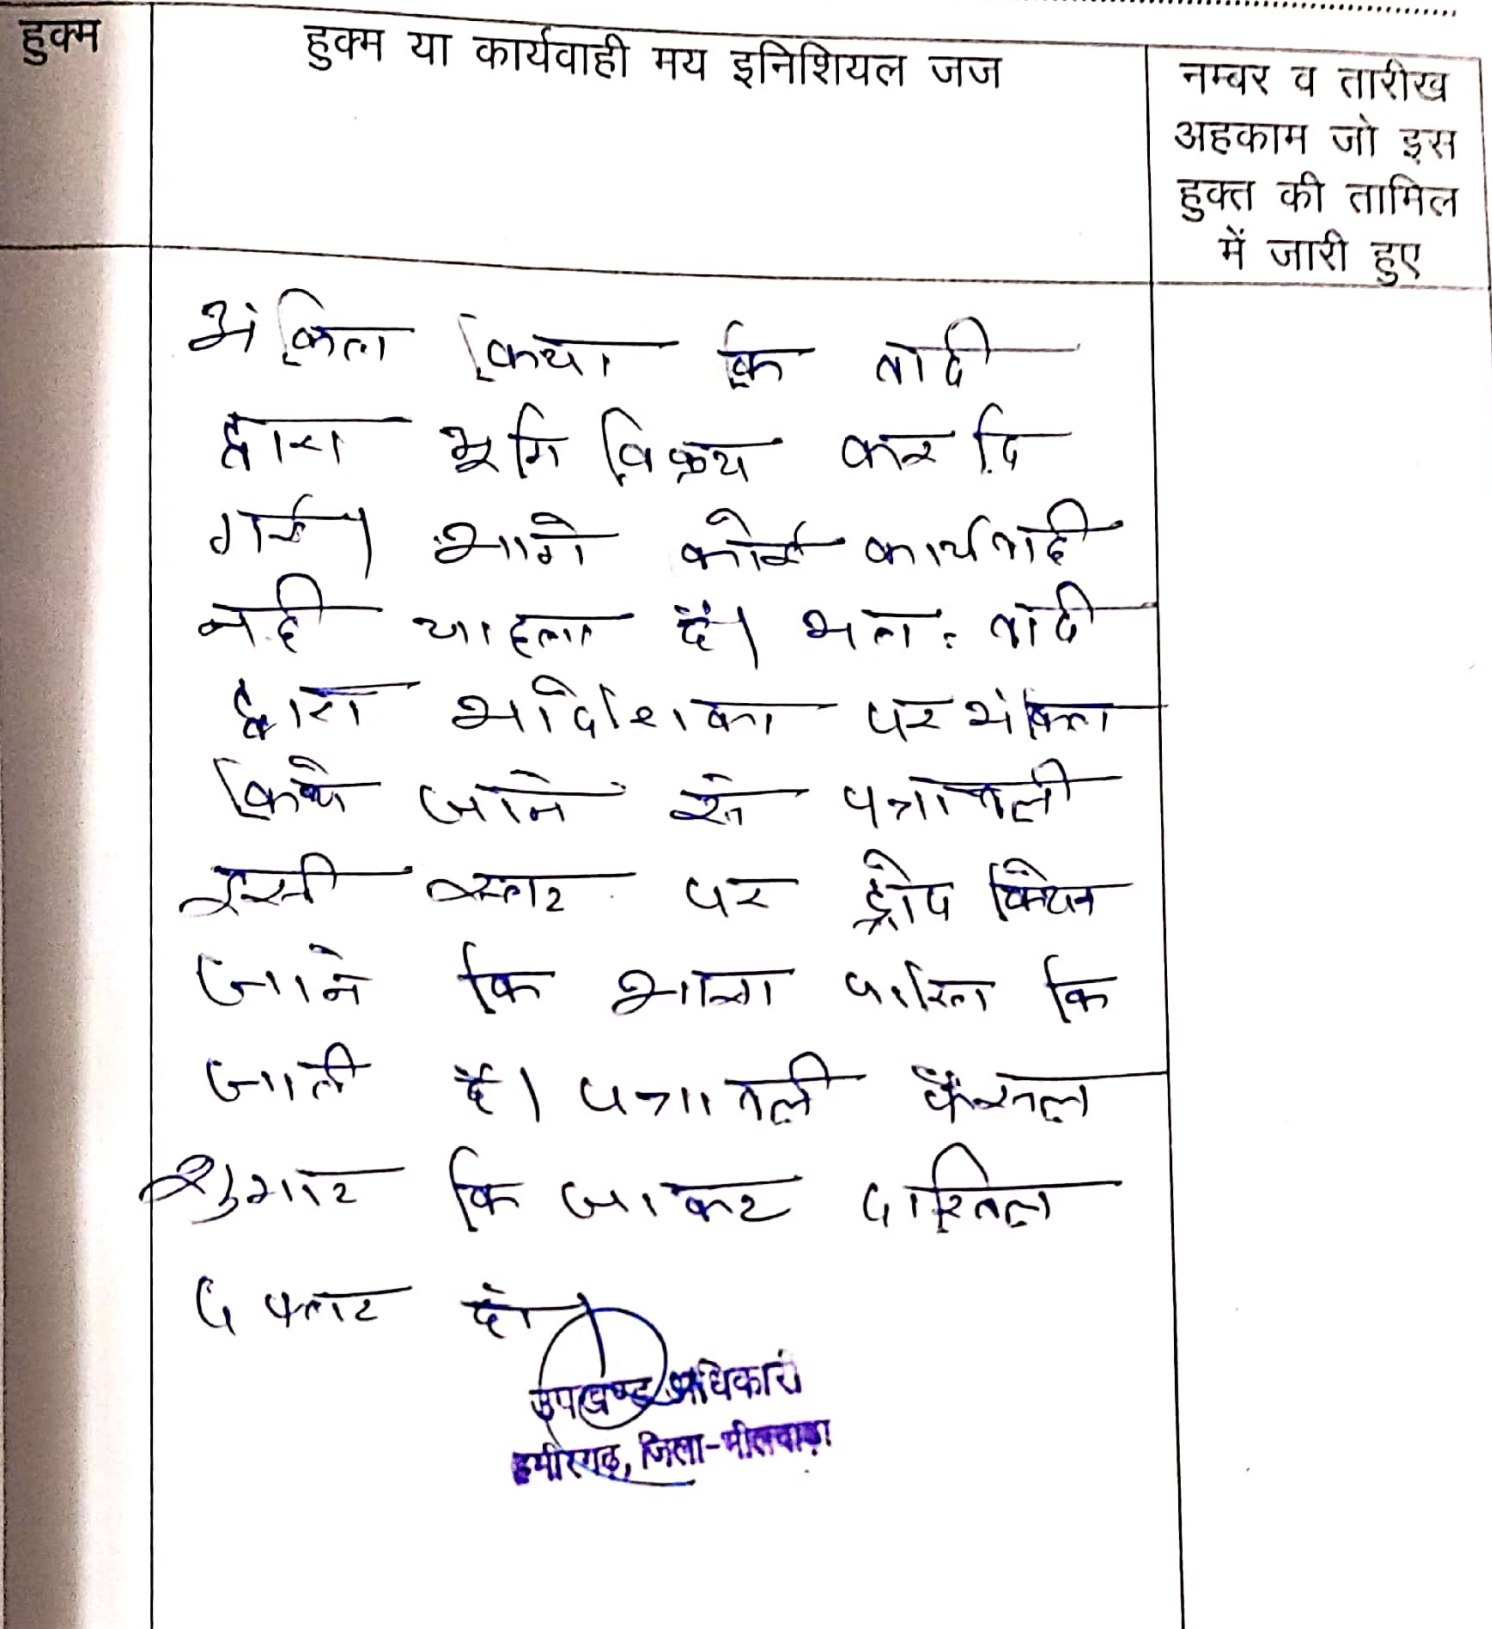 हुक्म
हुक्म या कार्यवाही मय इनिशियल जज
नम्बर व तारीख
अहकाम जो इस
हुक्त की तामिल
में जारी हुए
अंकित किया कि वादी
द्वारा भूमि विक्रय कर दि
गई। आगे कोई कार्यवाही
नही चाहता है। अतः वादी
द्वारा आदेशिका पर अंकित
किये जाने से पत्रावली
इसी स्तर पर ड्रोप किये
जाने कि आज्ञा पारित कि
जाती है। पत्रावली फैसल
शुमार कि जाकर दाखिल
दफ्तर हो।
उपखण्ड अधिकारी
हमीरगढ़, जिला-भीलवाड़ा